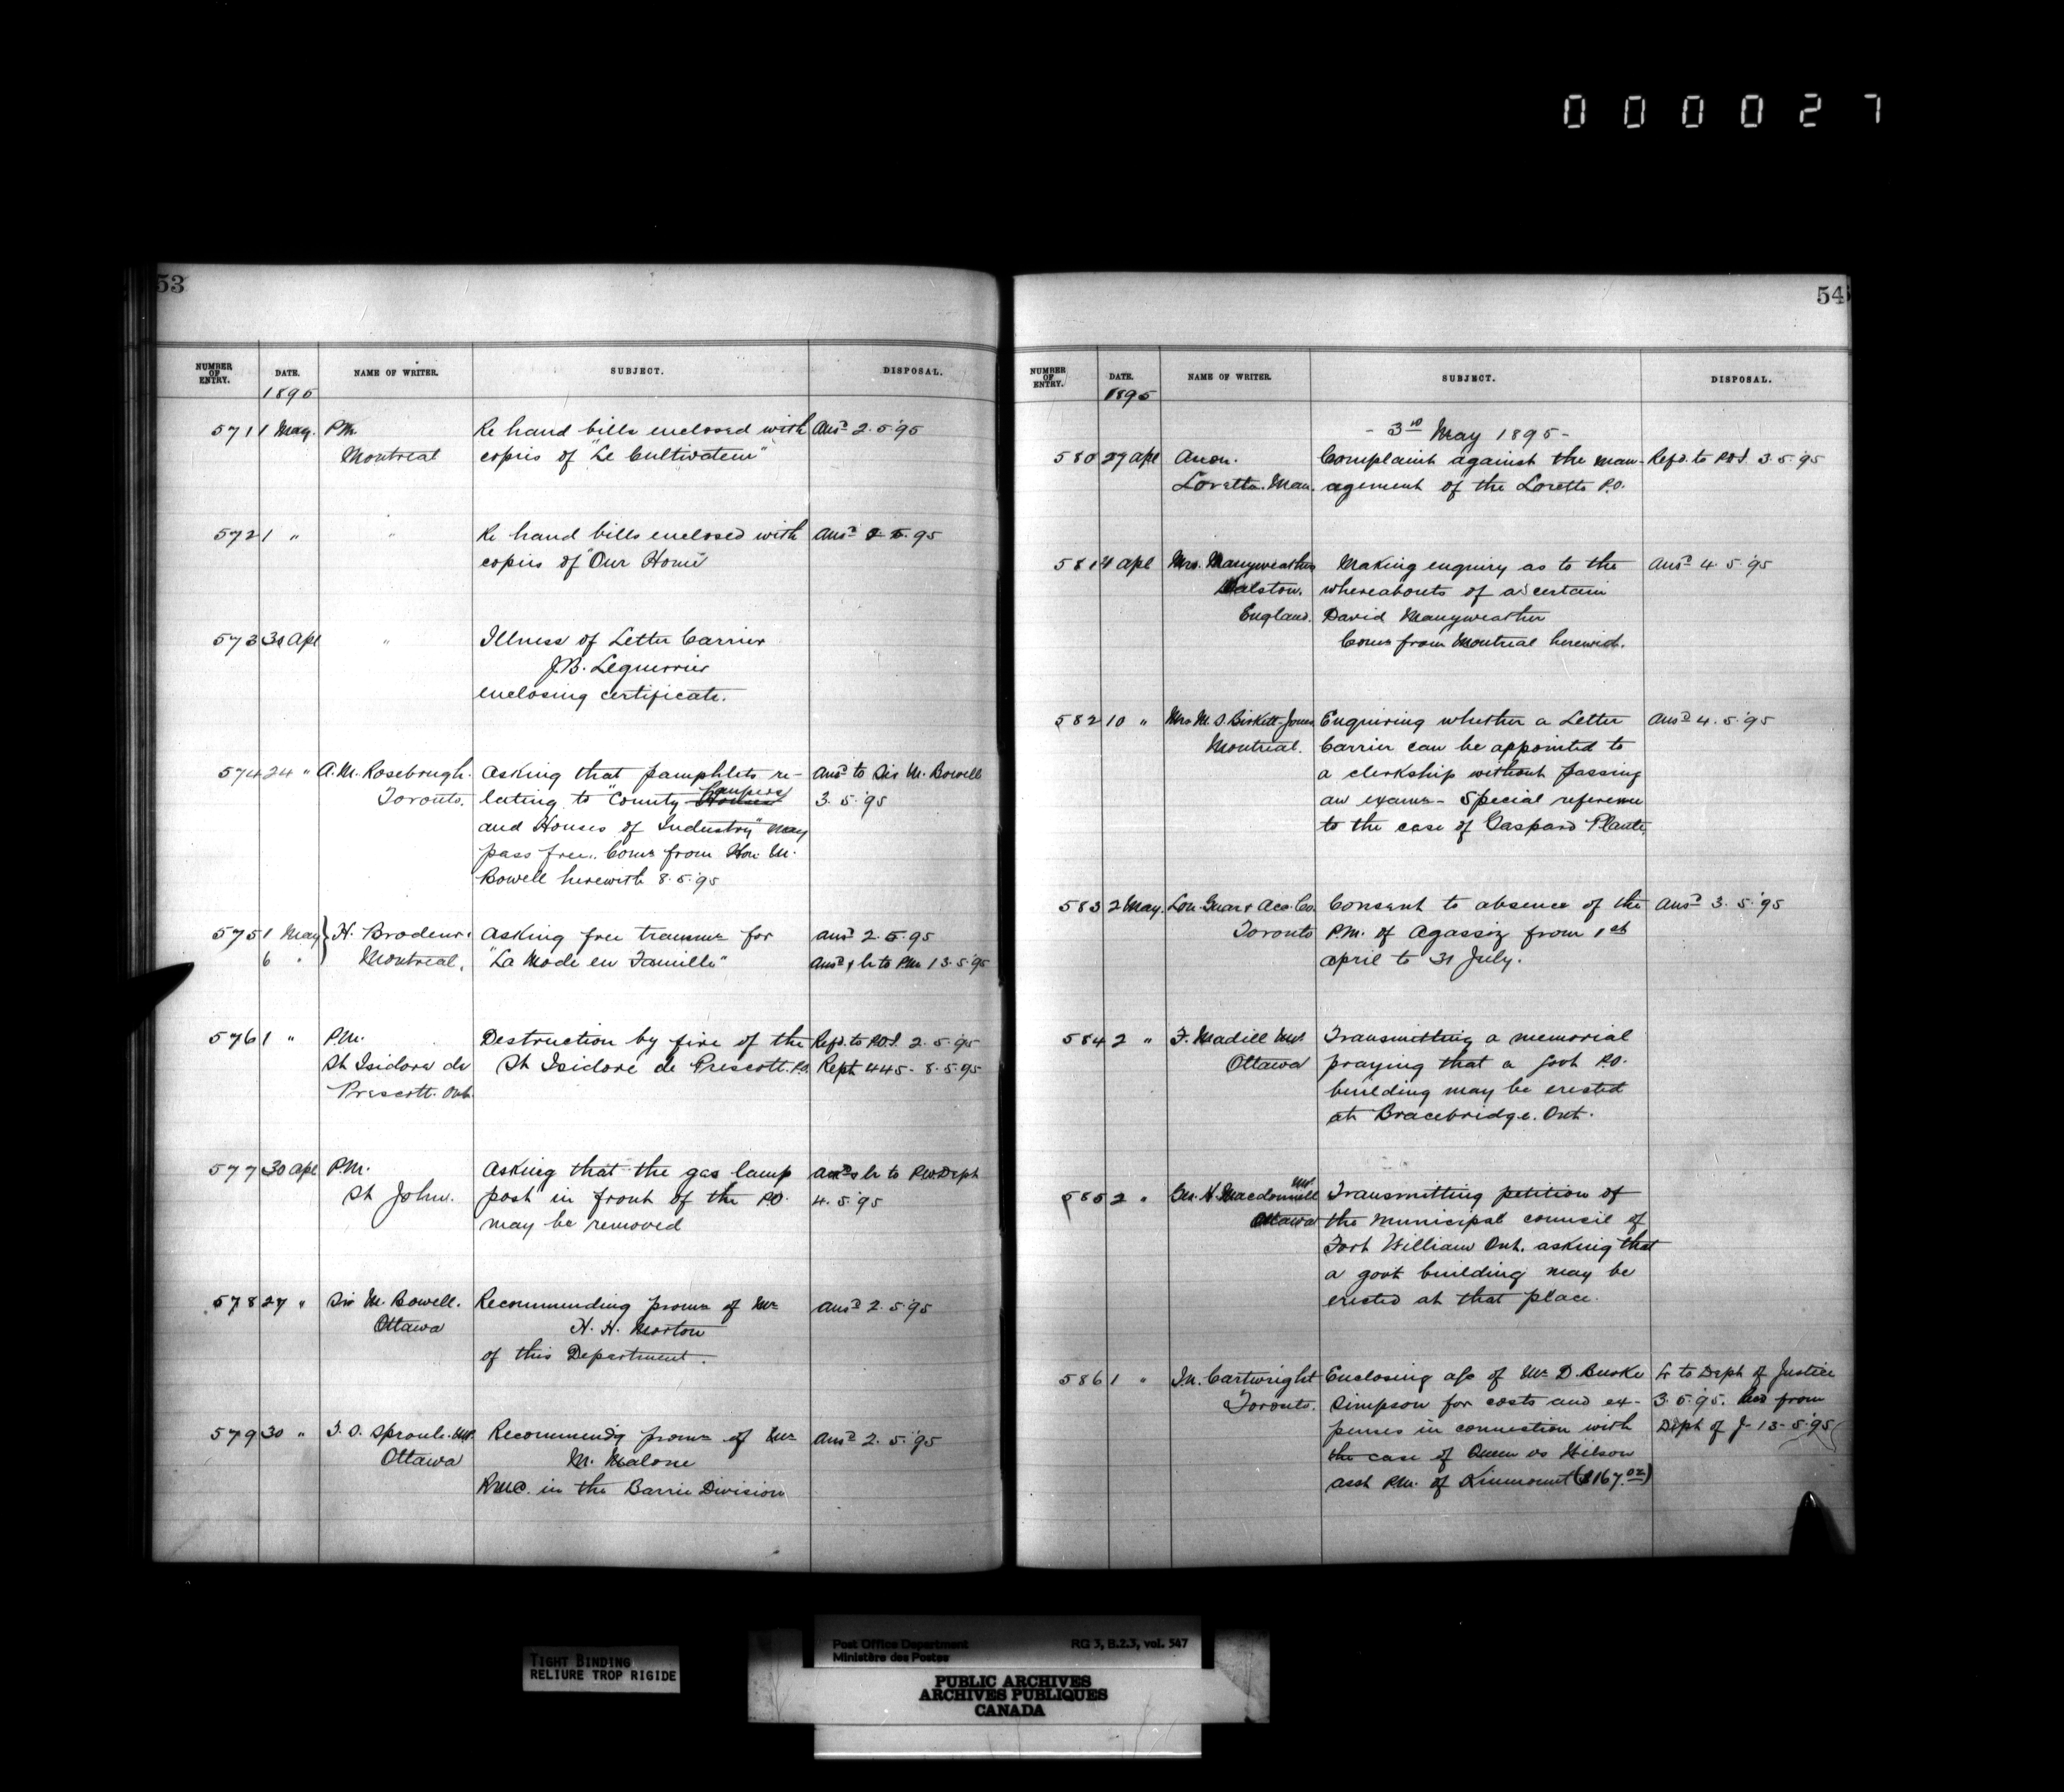 0 0 0 0 2 7
53
NUMBER OF ENTRY. DATE. NAME OF WRITER. SUBJECT. DISPOSAL.
1895
571 1 May. P.M. Re hand bills enclosed with Ansd 2.5.95
Montreal copies of "Le Cultivateur"
572 1 " " Re hand bills enclosed with Ansd 2.5.95
copies of "Our Home"
573 30 Apl " Illness of Letter Carrier
J.B. Leguerrier
enclosing certificate.
574 24 " A.M. Rosebrugh. Asking that pamphlets re- Ansd to Sir M. Bowell
Toronto. lating to "County Houses Paupers 3.5.95
and Houses of Industry" may
pass free. Comn from Hon M.
Bowell herewith 8.5.95
575 1 May } H. Brodeur. Asking free transmn for Ansd 2.5.95
6 " Montreal. "La Mode en Famille" Ansd & lr to P.M. 13.5.95
576 1 " P.M. Destruction by fire of the Refd. to P.O.I. 2.5.95
St Isidore de St Isidore de Prescott P.O. Rept 445 - 8.5.95
Prescott. Ont.
577 30 Apl P.M. Asking that the gas lamp Ansd & lr to P.W. Dept
St John. post in front of the P.O. 4.5.95
may be removed
578 27 " Sir M. Bowell. Recommending promn of Mr Ansd 2.5.95
Ottawa H. H. Morton
of this Department.
579 30 " T. S. Sproule. M.P. Recommendg promn of Mr Ansd 2.5.95
Ottawa M. Malone
R.M.C. in the Barrie Division
54
NUMBER OF ENTRY. DATE. NAME OF WRITER. SUBJECT. DISPOSAL.
1895
- 3rd May 1895 -
580 29 Apl Anon. Complaint against the man- Refd. to P.O.I. 3.5.95
Lorette. Man. agement of the Lorette P.O.
581 4 Apl Mrs. Manyweathers Making enquiry as to the Ansd 4.5.95
England. whereabouts of a certain
David Manyweather
Comn from Montreal herewith.
582 10 " Mrs M. S. Birkett-Jones Enquiring whether a Letter Ansd 4.5.95
Montreal. Carrier can be appointed to
a clerkship without passing
an examn - Special reference
to the case of Gaspard Plante.
583 2 May. Lon. Guar & Acc. Co. Consent to absence of the Ansd 3.5.95
Toronto P.M. of Agassiz from 1st
April to 31 July.
584 2 " F. Madill M.P. Transmitting a memorial
Ottawa praying that a Govt P.O.
building may be erected
at Bracebridge. Ont.
585 2 " Macdonnell M.P. Transmitting petition of
Ottawa the municipal council of
Fort William Ont. asking that
a govt building may be
erected at that place.
586 1 " Jn. Cartwright Enclosing a/c of Mr D. Burke L to Dept of Justice
Toronto. Simpson for costs and ex- 3.5.95. from
penses in connection with Dept of J 13-5.95
the case of Queen vs Wilson
asst P.M. of Kinmount ($167.02)
TIGHT BINDING
RELIURE TROP RIGIDE
Post Office Department RG 3, B.2.3, vol. 547
Ministère des Postes
PUBLIC ARCHIVES
ARCHIVES PUBLIQUES
CANADA